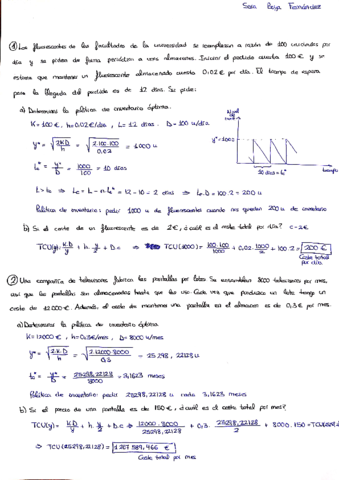 Sara Beja Fernández
① Los fluorescentes de las facultades de la universidad se reemplazan a razón de 100 unidades por
día y se piden de forma periódica a unos almacenes. Iniciar el pedido cuesta 100€ y se
estima que mantener un fluorescente almacenado cuesta 0.02€ por día. El tiempo de espera
para la llegada del pedido es de 12 días. Se pide:
a) Determinar la política de inventario óptima.
K = 100€, h = 0.02€/día, L = 12 días. D = 100 u/día
y* = √(2KD/h) = √(2·100·100/0.02) = 1000 u
y = 1000
t₀* = y*/D = 1000/100 = 10 días
10 días = t₀*
tiempo
L > t₀ ⇒ Le = L - n·t₀* = 12 - 10 = 2 días ⇒ Le·D = 100·2 = 200 u
Política de inventario: pedir 1000 u de fluorescentes cuando nos queden 200 u de inventario
b) Si el coste de un fluorescente es de 2€, ¿cuál es el coste total por día? c = 2€
TCU(y) = KD/y + h·y/2 + D·c ⇒ TCU(1000) = 100·100/1000 + 0.02·1000/2 + 100·2 = 200€
Coste total
por día
② Una compañía de televisores fabrica las pantallas por lotes. Se ensamblan 8000 televisores por mes,
así que las pantallas son almacenadas hasta que las use. Cada vez que produzca un lote tiene un
coste de 12000€. Además, el coste de mantener una pantalla en el almacén es de 0.3€ por mes.
a) Determinar la política de inventario óptima
K = 12000€, h = 0.3€/mes, D = 8000 u/mes
y* = √(2·K·D/h) = √(2·12000·8000/0.3) = 25298,22128 u
t₀* = y*/D = 25298,22128/8000 = 3,1623 meses
Política de inventario: pedir 25298,22128 u cada 3,1623 meses
b) Si el precio de una pantalla es de 150€, ¿cuál es el coste total por mes?
TCU(y) = KD/y + h·y/2 + D·c ⇒ 12000·8000/25298,22128 + 0.3·25298,22128/2 + 8000·150 = TCU(25298,2
⇒ TCU(25298,22128) = 1207589,466€
Coste total por mes